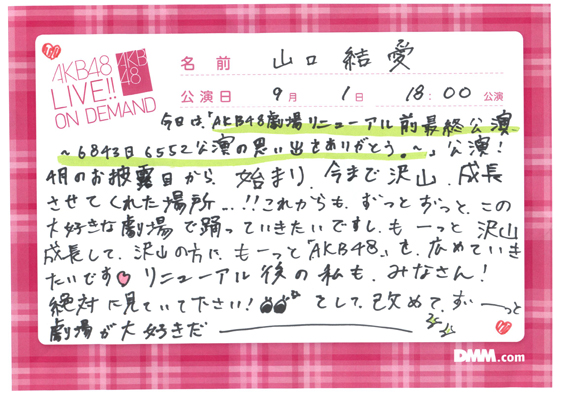 AKB48
LIVE!!
ON DEMAND
AKB
48
名前 山口 結愛
公演日 9月 1日 18:00 公演
今日は「AKB48劇場リニューアル前最終公演
~6843日6552公演の思い出をありがとう。~」公演!
4月のお披露目から、始まり、今まで沢山、成長
させてくれた場所...!!これからも、ずっとずっと、この
大好きな劇場で踊っていきたいですし、も一っと 沢山
成長して、沢山の方に、も一っと「AKB48」を、広めていき
たいです♡ リニューアル後の私も、みなさん!
絶対に見ていて下さい! そして、改めて、ず一っと
劇場が大好きだ
DMM.com